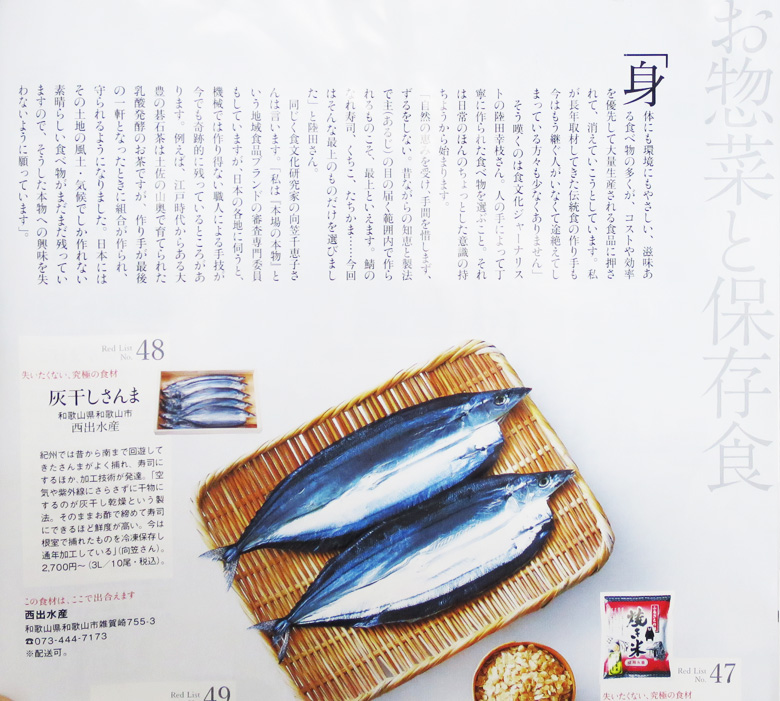 お惣菜と保存食
「身体にも環境にもやさしい、滋味あ
る食べ物の多くが、コストや効率
を優先して大量生産される食品に押さ
れて、消えていこうとしています。私
が長年取材してきた伝統食の作り手も
今はもう継ぐ人がいなくて途絶えてし
まっている方々も少なくありません」
そう嘆くのは食文化ジャーナリス
トの陸田幸枝さん。人の手によって丁
寧に作られた食べ物を選ぶこと。それ
は日常のほんのちょっとした意識の持
ちようから始まります。
「自然の恵みを受け、手間を惜しまず、
ずるをしない。昔ながらの知恵と製法
で主（あるじ）の目の届く範囲内で作ら
れるものこそ、最上といえます。鯖の
なれ寿司、くちこ、たちかま……今回
はそんな最上のものだけを選びまし
た」と陸田さん。
同じく食文化研究家の向笠千恵子さ
んは言います。「私は『本場の本物』と
いう地域食品ブランドの審査専門委員
もしていますが、日本の各地に伺うと、
機械では作り得ない職人による手技が
今でも奇跡的に残っているところがあ
ります。例えば、江戸時代からある大
豊の碁石茶は土佐の山奥で育てられた
乳酸発酵のお茶ですが、作り手が最後
の一軒となったときに組合が作られ、
守られるようになりました。日本には
その土地の風土・気候でしか作れない
素晴らしい食べ物がまだまだ残ってい
ますので、そうした本物への興味を失
わないように願っています」。
Red List
No. 48
失いたくない、究極の食材
灰干しさんま
和歌山県和歌山市
西出水産
紀州では昔から南まで回遊して
きたさんまがよく捕れ、寿司に
するほか、加工技術が発達。「空
気や紫外線にさらさずに干物に
するのが灰干し乾燥という製
法。そのままお酢で締めて寿司
にできるほど鮮度が高い。今は
根室で捕れたものを冷凍保存し
通年加工している」（向笠さん）。
2,700円〜（3L／10尾・税込）。
この食材は、ここで出合えます
西出水産
和歌山県和歌山市雑賀崎755-3
☎073-444-7173
※配送可。
Red List
No. 49
焼き米
Red List
No. 47
失いたくない、究極の食材